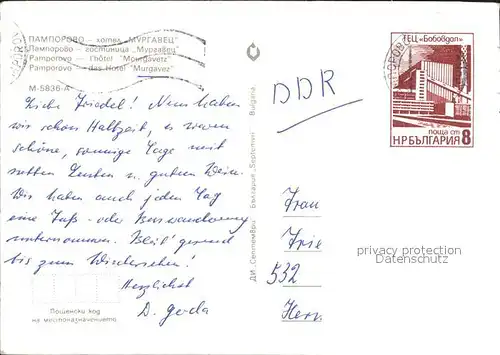 ПАМПОРОВО — хотел „МУРГАВЕЦ"
Пампорово — гостиница „Мургавец"
Pamporovo — l'hôtel "Mourgavetz"
Pamporovo — das Hotel "Murgavez"
М-5836-А
Liebe Friedel! Nun haben
wir schon Halbzeit, es waren
schöne, sonnige Tage mit
netten Leuten u. gutem Wein.
Wir haben auch jeden Tag
eine Fuß- oder Bergwanderung
unternommen. Bleib' gesund
bis zum Wiedersehen!
Herzlichst
D. Gerda
Пощенски код
на местоназначението
ДИ „Септември" България „Septemvri" Bulgaria
DDR
ТЕЦ „Бобовдол"
поща ст
НР БЪЛГАРИЯ 8
Frau
532
privacy protection
Datenschutz